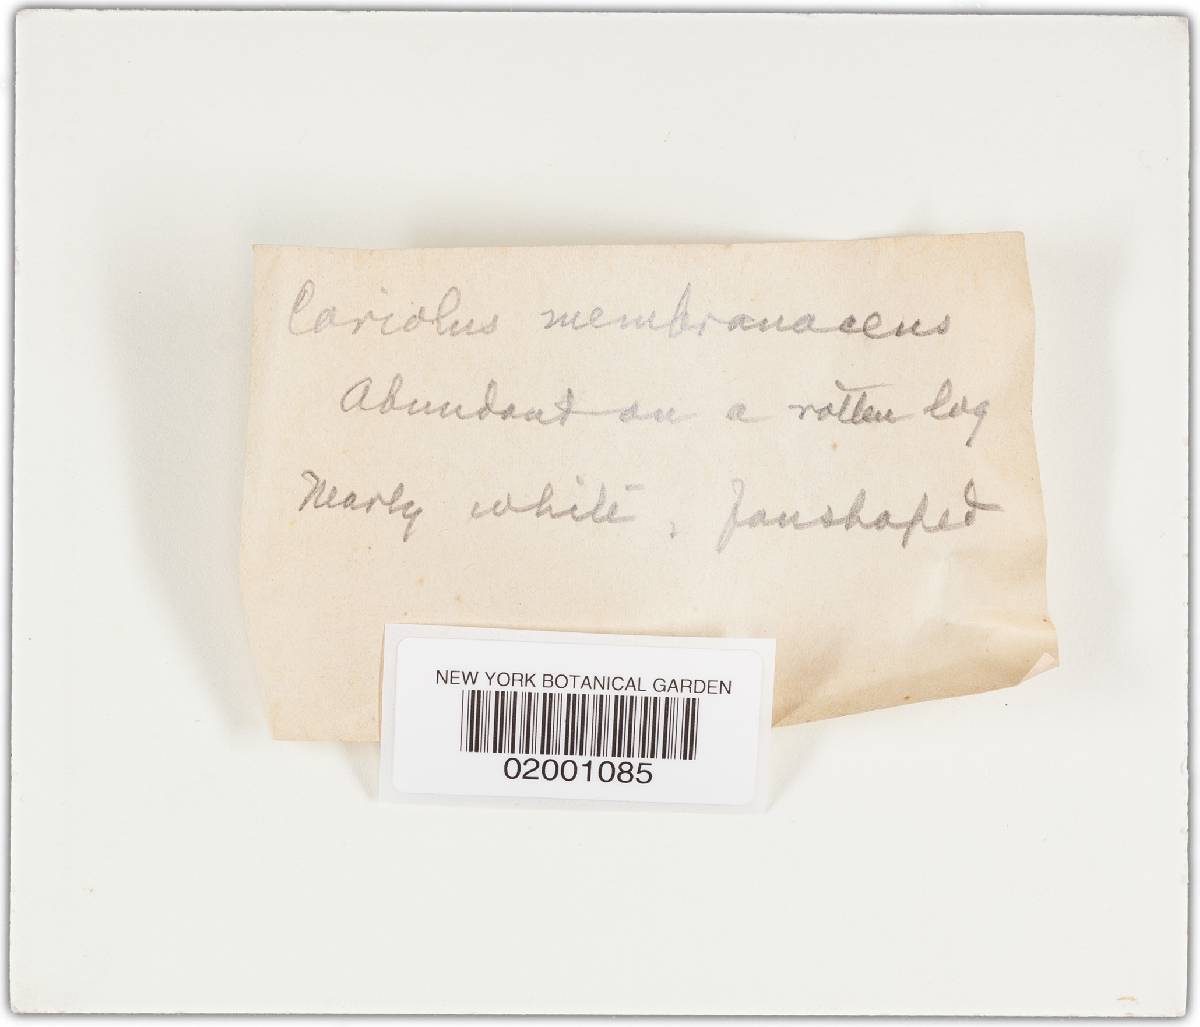 Coriolus membranaceus
Abundant on a rotten log
Nearly white, fanshaped
NEW YORK BOTANICAL GARDEN
02001085